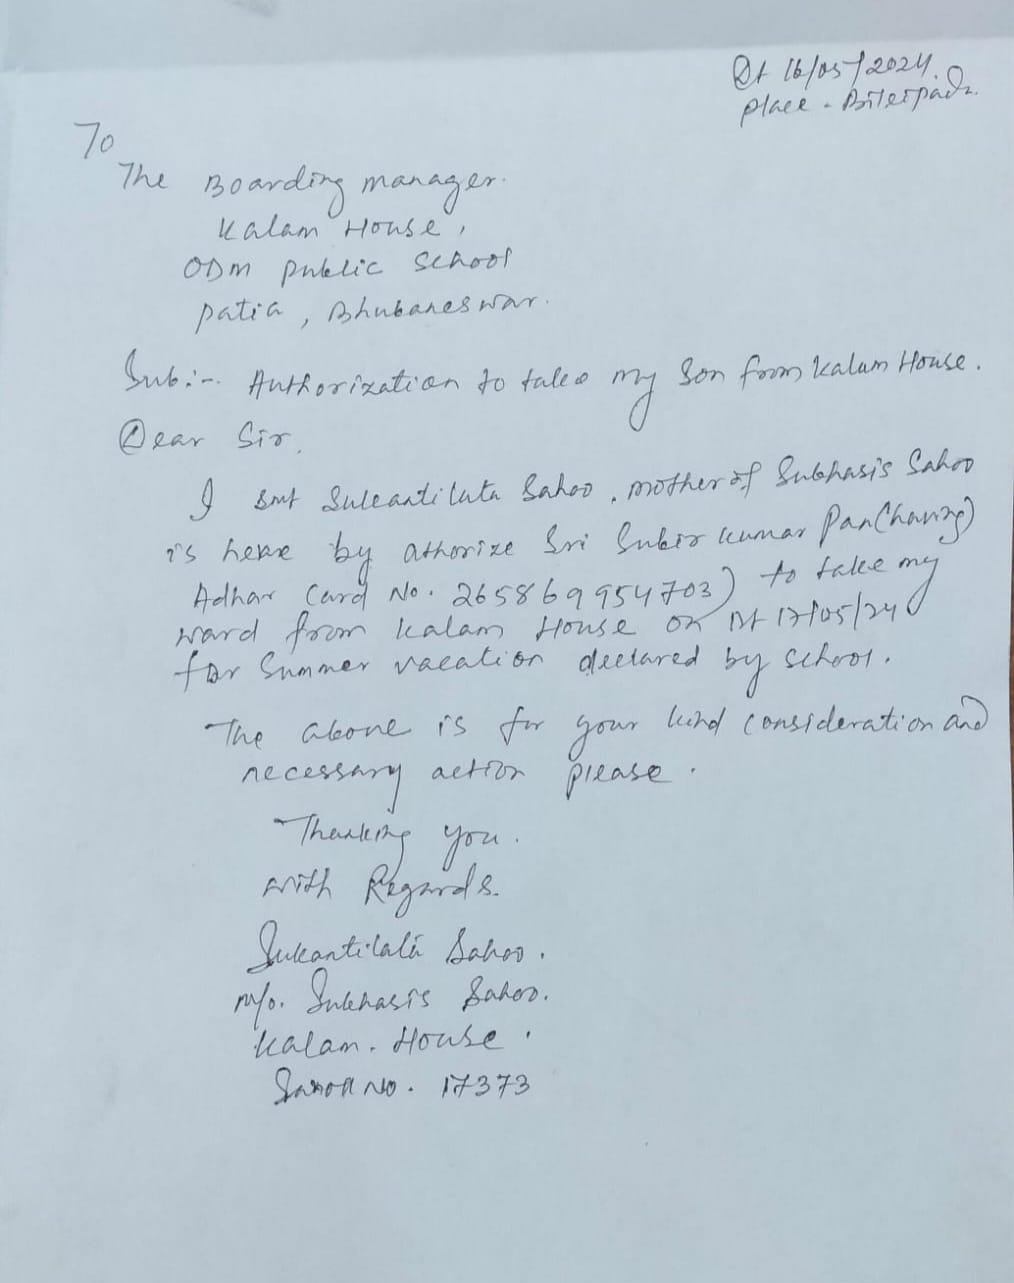 Dt 16/05/2024.
Place - 
To
The Boarding manager.
Kalam House,
ODM Public School
Patia, Bhubaneswar.
Sub:- Authorization to take my Son from Kalam House.
Dear Sir,
I Smt Sukantilata Sahoo, mother of Subhasis Sahoo
is here by athorize Sri Subir Kumar Pan (having
Adhar Card No. 265869954703) to take my
ward from Kalam House on Dt 17/05/24
for Summer vacation declared by school.
The above is for your kind consideration and
necessary action please.
Thanking you.
With Regards.
Sukantilata Sahoo.
M/o. Subhasis Sahoo.
Kalam. House.
No. 17373